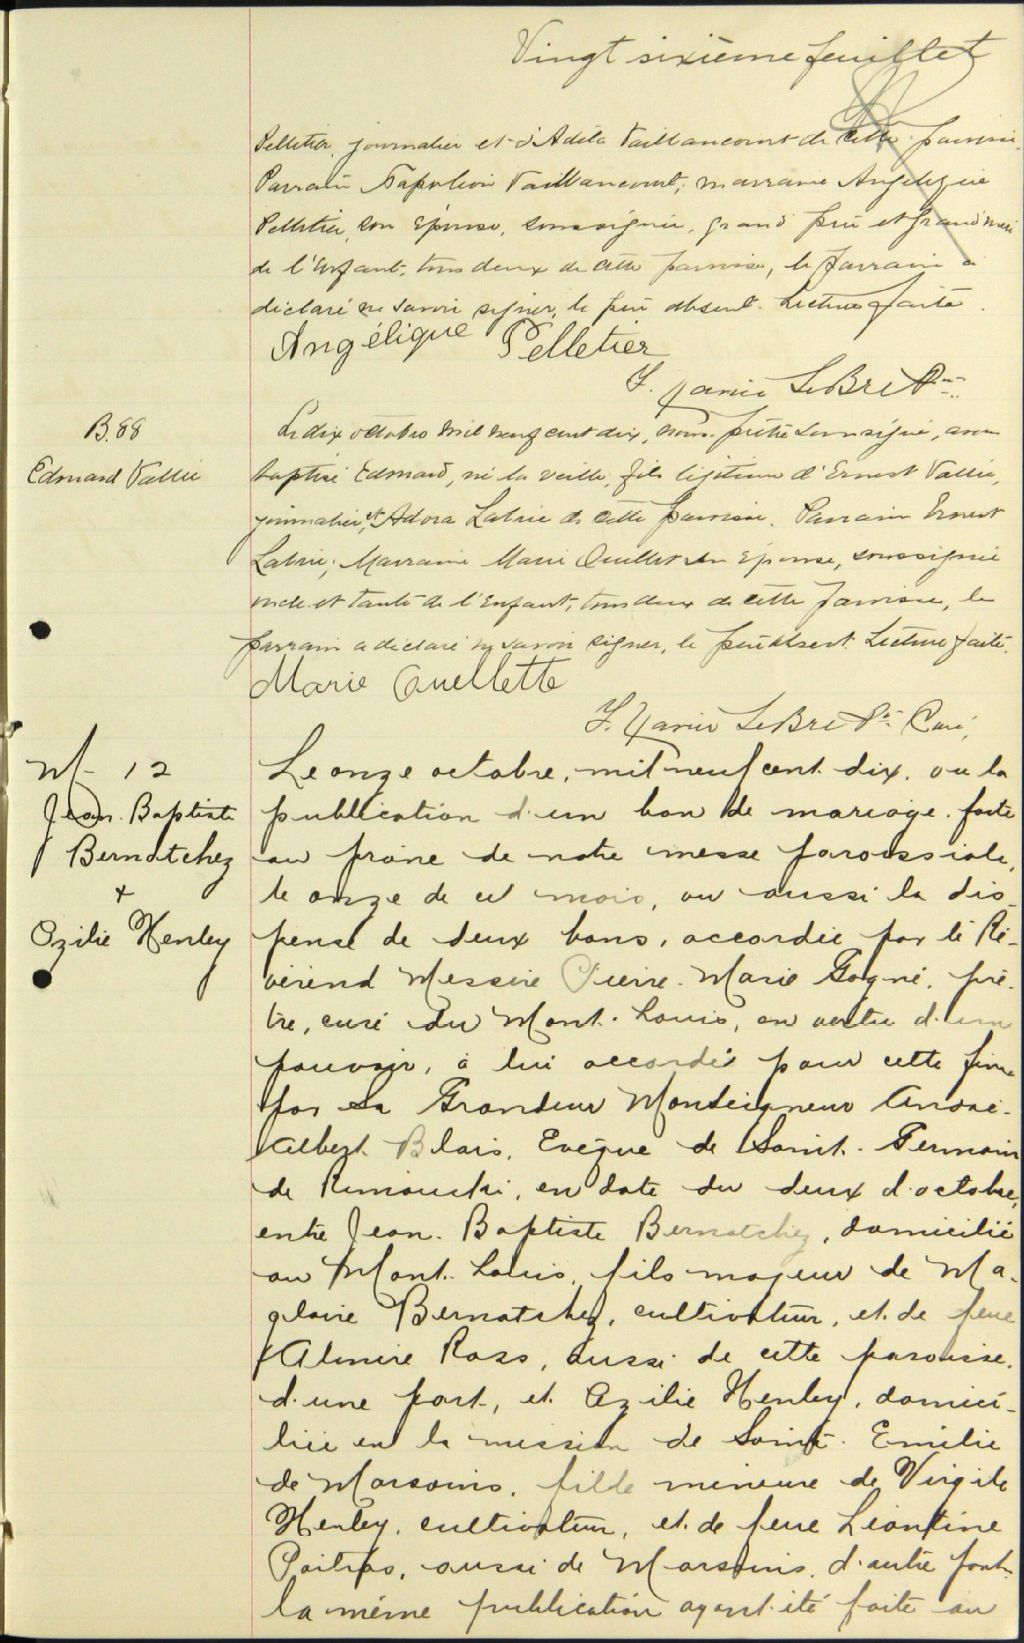 Vingt sixième feuillet
Pelletier, journalier et d'Adéla Vaillancourt de cette paroisse.
Parrain Napoléon Vaillancourt; marraine Angélique
Pelletier, son épouse, soussignée, grand père et grand'mère
de l'enfant, tous deux de cette paroisse, le parrain a
déclaré ne savoir signer, le père absent. Lecture faite.
Angélique Pelletier
F. Xavier LeBrel Ptre
B. 88
Edmond Vallée
Le dix octobre mil neuf cent dix, nous prêtre soussigné, avons
baptisé Edmond, né la veille, fils légitime d'Ernest Vallée,
journalier, et Adora Labrie de cette paroisse. Parrain Ernest
Labrie; Marraine Marie Ouellet son épouse, soussignée
oncle et tante de l'enfant, tous deux de cette paroisse, le
parrain a déclaré ne savoir signer, le père absent. Lecture faite.
Marie Ouellette
F. Xavier LeBrel Ptre Curé,
M- 12
Jean. Baptiste
Bernatchez
+
Ozilie Henley
Le onze octobre, mil neuf cent dix, vu la
publication d'un ban de mariage faite
au prône de notre messe paroissiale,
le onze de ce mois, vu aussi la dis-
pense de deux bans, accordée par le Ré-
vérend Messire Pierre-Marie Gagné, prê-
tre, curé du Mont-Louis, en vertu d'un
pouvoir, à lui accordé pour cette fin
par Sa Grandeur Monseigneur André-
Albert Blais, Evêque de Saint-Germain
de Rimouski, en date du deux d'octobre,
entre Jean-Baptiste Bernatchez, domicilié
au Mont-Louis, fils majeur de Ma-
gloire Bernatchez, cultivateur, et de feue
Almire Ross, aussi de cette paroisse,
d'une part, et Azilie Henley, domici-
liée en la mission de Saint-Emilie
de Marsouins, fille mineure de Virgile
Henley, cultivateur, et de feue Léontine
Poitras, aussi de Marsouins, d'autre part
la même publication ayant été faite au